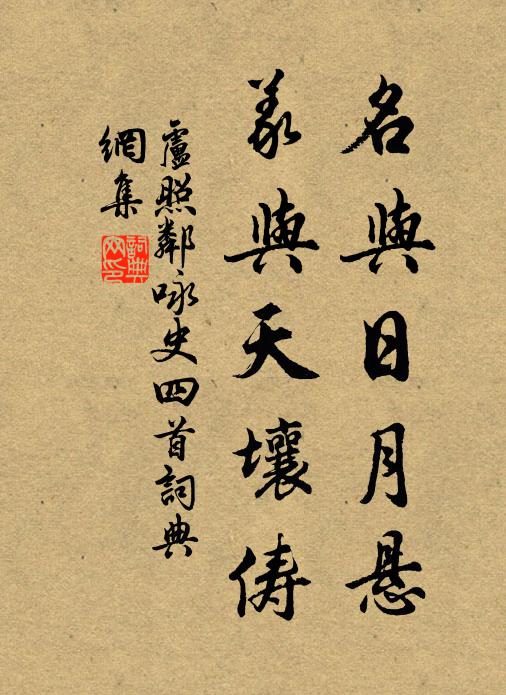 名與日月懸
義與天壤儔
盧照鄰咏史四首詞典
網集
詞典網印